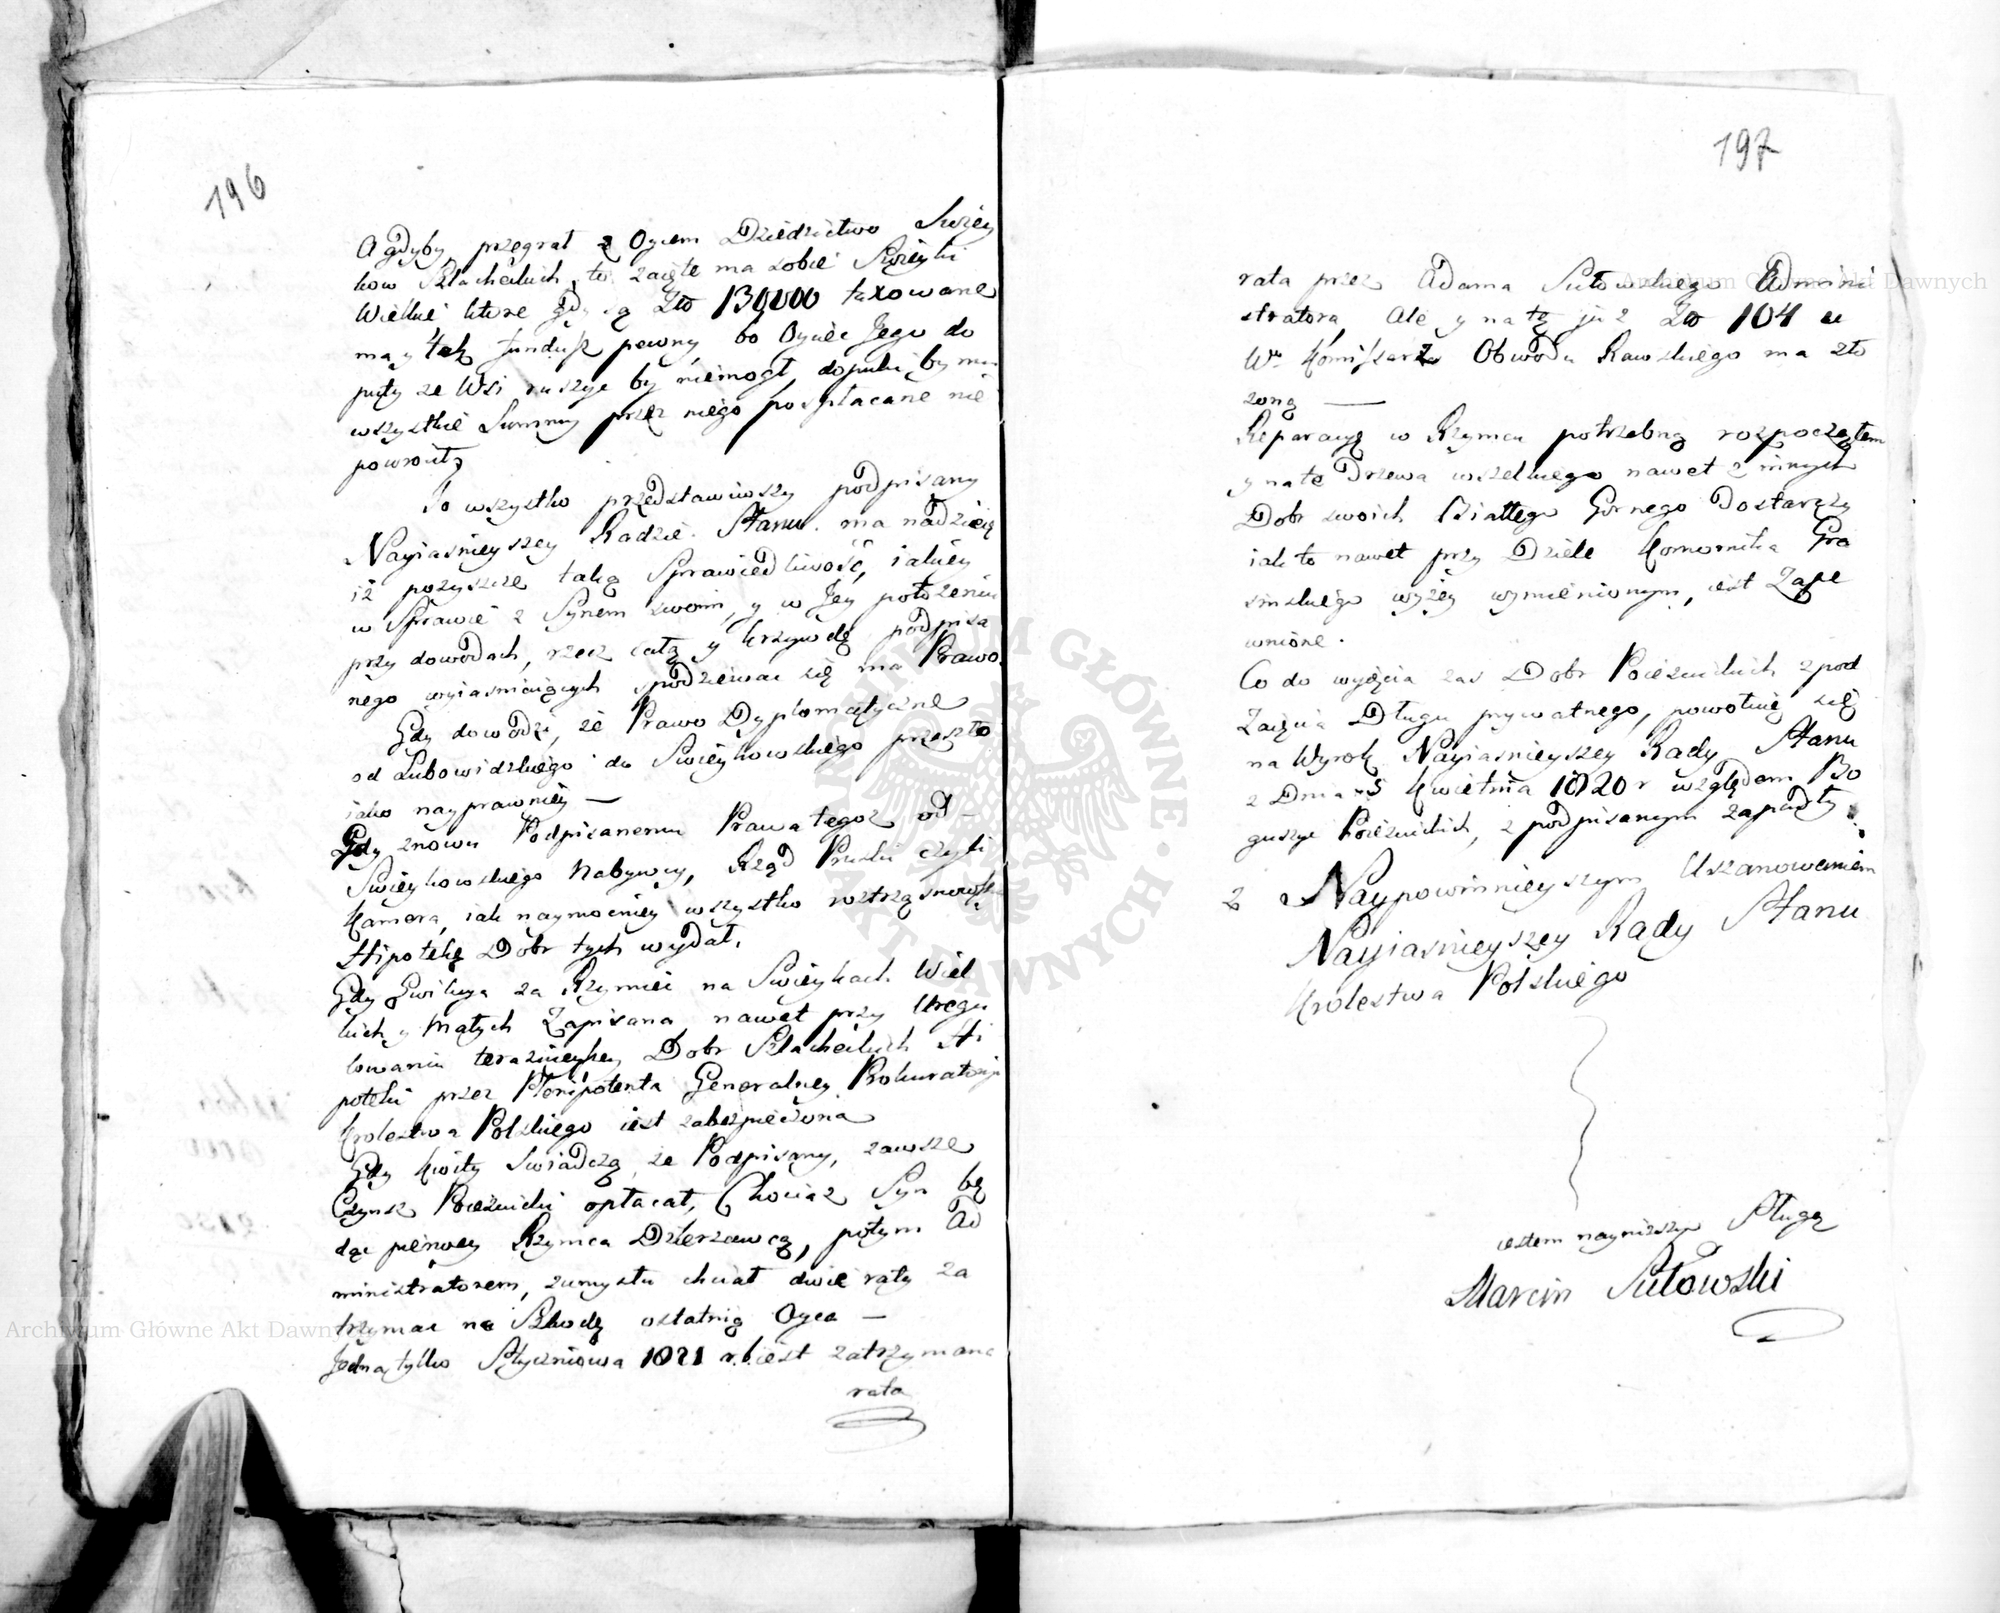 196
A gdyby przegrał z Oycem Dziedzictwo Święy
kow Szlacheckich, to zaięte ma sobie Święyki
Wielkie ktore gdy są Zło 139000 taxowane
ma y tak fundusz pewny, bo Oyciec Jego do
puty ze Wsi ruszyć by niemogł, dopuki by mu
wszystkie Summy przez niego pospłacane nie
powrocił
To wszystko przedstawiwszy podpisany
Nayiasnieyszey Radzie Stanu ma nadzieię
iż pozyszcze taką Sprawiedliwość, iakiey
w Sprawie z Synem swoim, y w Jey położeniu
przy dowodach, rzecz całą y krzywdę podpisa
nego wyiasniaiących spodziewac się ma Prawo.
Gdy dowodzi, że Prawo Dyplomatyczne
od Lubowidzkiego do Swięykowskiego przeszło
iako nayprawniey —
Gdy znowu Podpisanemu Prawa tegoż od
Swięykowskiego Nabywcy, Rząd Pruski czyli
Kamera, iak naymocniey wszystko roztrząsnąwszy
Hipotekę Dobr tych wydał.
Gdy Ewikcya za Rzymiec na Swięykach Wiel
kich y Małych Zapisana nawet przy Uregu
lowaniu terażnieyszey Dobr Szlacheckich Hi
poteki przez Plenipotenta Generalney Prokuratoryi
Krolestwa Polskiego iest zabezpieczona
Gdy kwity Swiadczą że Podpisany, zawsze
Czynsz Poiezuicki opłacał, Chociaż Syn bę
dąc pierwey Rzymca Dzierzawcą, potym Ad
ministratorem, zumysłu chciał dwie raty za
trzymac na Szkodę ostatnią Oyca —
Jedna tylko Styczniowa 1821 r. iest zatrzymana
rata
197
rata przez Adama Sułowskiego Admini
stratora, Ale y na tę już Zło 104 u
Wo Kommissarza Obwodu Rawskiego ma zło
zoną —
Reparacyę w Rzymcu potrzebną rozpocząłem
y na te Drzewa wszelkiego nawet z innych
Dobr swoich Białłego Gornego Dostarczy
iak to nawet przy Dziele Komornika Gra
sinskiego wyżey wymienionym, iest Zape
wnione.
Co do wyięcia zas Dobr Poiezuickich zpod
Zaięcia Długu prywatnego, powołuię się
na Wyrok Nayiasnieyszey Rady Stanu
z Dnia 5 Kwietnia 1820 r względem Bo
guszyc Poiezuickich, z podpisanym zapadły.
Z Naypowinnieyszym Uszanowaniem
Nayiasnieyszey Rady Stanu
Krolestwa Polskiego
iestem nayniższym Sługą
Marcin Sułowski